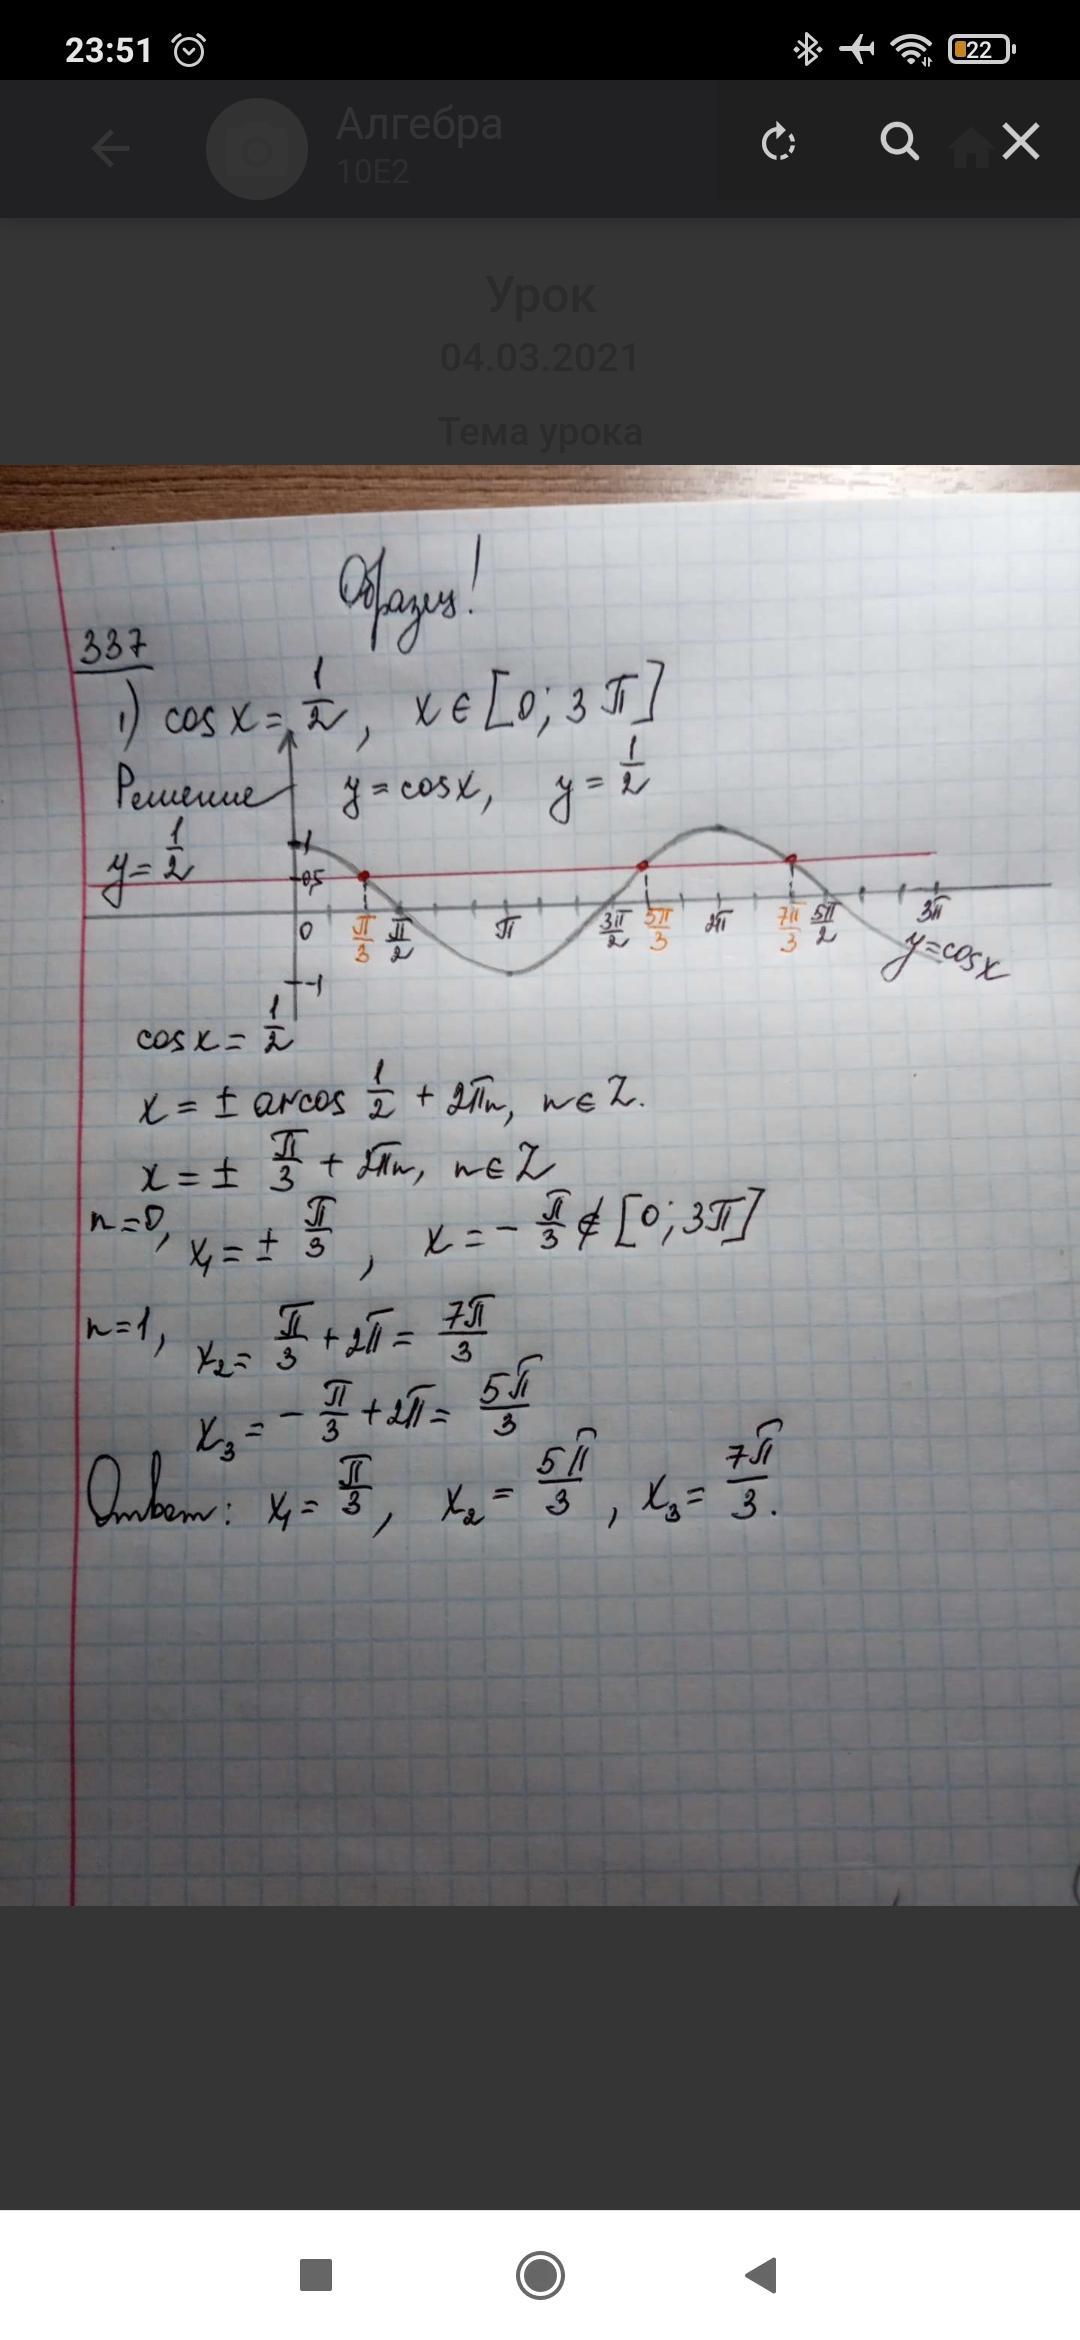 23:51
22
Алгебра
10Е2
Урок
04.03.2021
Тема урока
Образец!
337
1) cos x = 1/2, x ∈ [0; 3π]
Решение y = cos x, y = 1/2
y = 1/2
1
0,5
0 π/3 π/2 π 3π/2 5π/3 2π 7π/3 5π/2 3π
y = cos x
-1
cos x = 1/2
x = ± arcos 1/2 + 2πn, n ∈ Z.
x = ± π/3 + 2πn, n ∈ Z
n = 0, x₁ = ± π/3, x = - π/3 ∉ [0; 3π]
n = 1, x₂ = π/3 + 2π = 7π/3
x₃ = - π/3 + 2π = 5π/3
Ответ: x₁ = π/3, x₂ = 5π/3, x₃ = 7π/3.